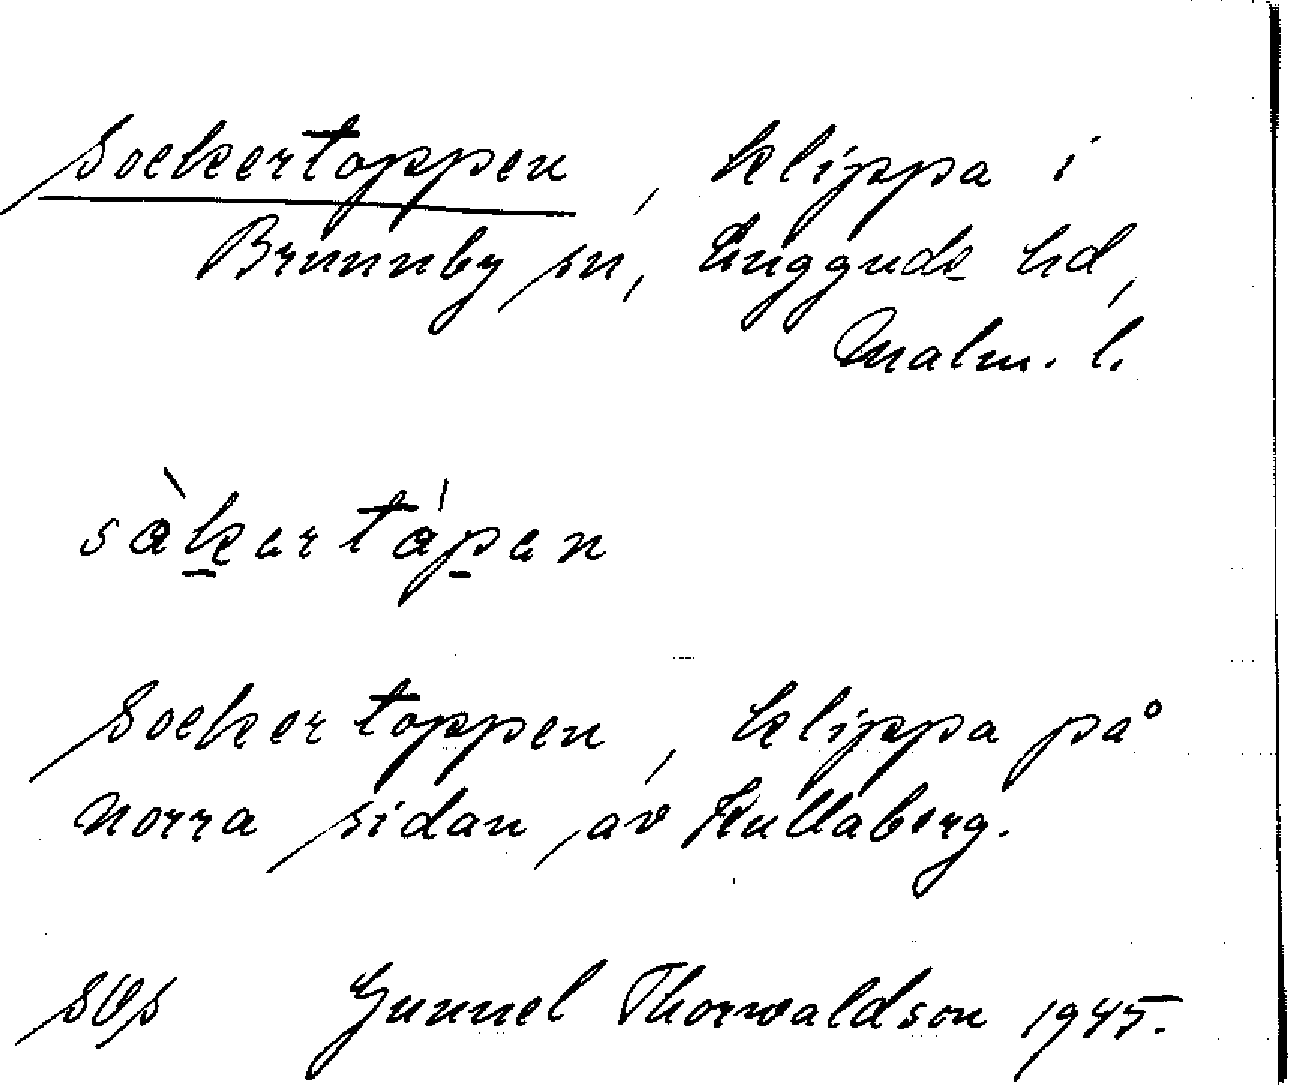 Sockertoppen, klippa i
Brunnby sn, Luggude hd,
Malm. l.
sàkertápen
Sockertoppen, klippa på
norra sidan av Kullaberg.
Gunnel Thorwaldson 1945.